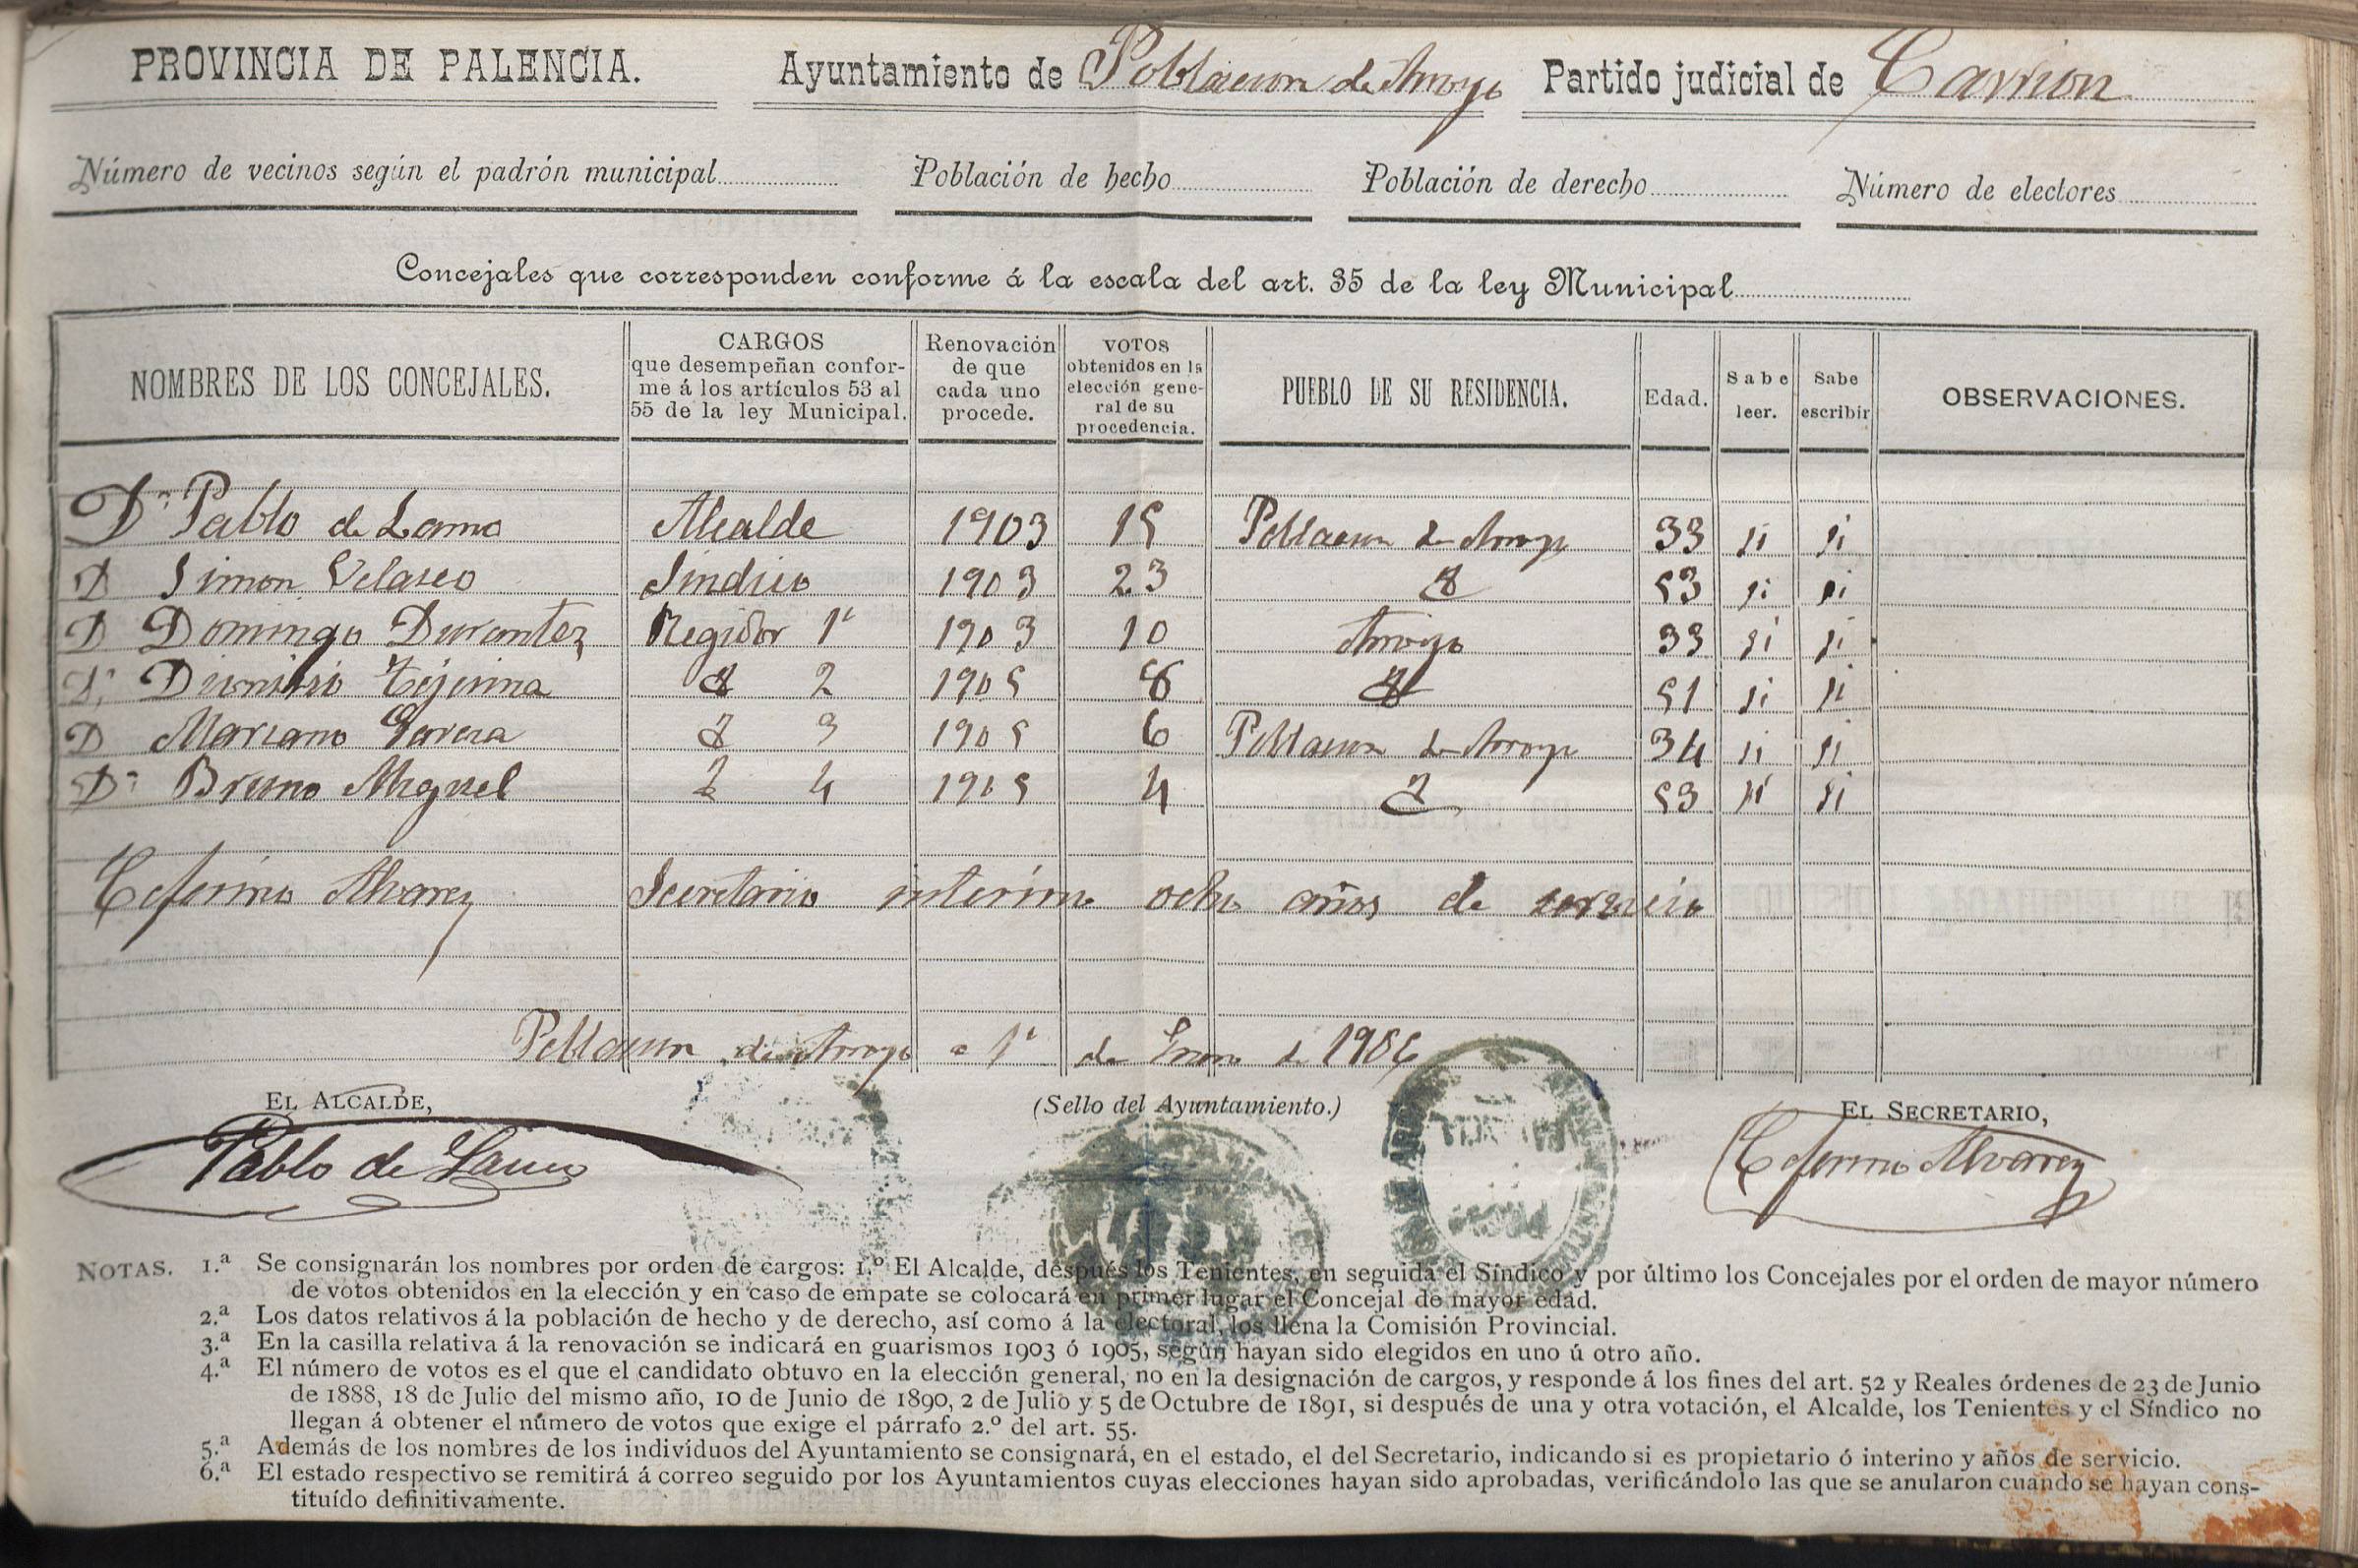 PROVINCIA DE PALENCIA. Ayuntamiento de Poblacion de Arroyo Partido judicial de Carrion
Número de vecinos según el padrón municipal Población de hecho Población de derecho Número de electores
Concejales que corresponden conforme á la escala del art. 35 de la ley Municipal
NOMBRES DE LOS CONCEJALES. CARGOS que desempeñan conforme á los artículos 53 al 55 de la ley Municipal. Renovación de que cada uno procede. VOTOS obtenidos en la elección general de su procedencia. PUEBLO DE SU RESIDENCIA. Edad. Sabe leer. Sabe escribir OBSERVACIONES.
Dn Pablo de Lama Alcalde 1903 15 Poblacion de Arroyo 33 si si
D Simon Velasco Sindico 1903 23 53 si si
D Domingo Durantez Regidor 1º 1903 10 Arroyo 33 si si
D. Dionisio Tejerina 2 1905 8 51 si si
D Mariano Garcia 3 1905 6 Poblacion de Arroyo 34 si si
D. Bruno Miguel 4 1905 4 53 si si
Ceferino Alvarez Secretario interino ocho años de servicio
Poblacion de Arroyo a 1º de Enero de 1906
EL ALCALDE, (Sello del Ayuntamiento.) EL SECRETARIO,
Pablo de Lama Ceferino Alvarez
NOTAS. 1.ª Se consignarán los nombres por orden de cargos: 1.º El Alcalde, después los Tenientes, en seguida el Síndico y por último los Concejales por el orden de mayor número
de votos obtenidos en la elección y en caso de empate se colocará en primer lugar el Concejal de mayor edad.
2.ª Los datos relativos á la población de hecho y de derecho, así como á la electoral, los llena la Comisión Provincial.
3.ª En la casilla relativa á la renovación se indicará en guarismos 1903 ó 1905, según hayan sido elegidos en uno ú otro año.
4.ª El número de votos es el que el candidato obtuvo en la elección general, no en la designación de cargos, y responde á los fines del art. 52 y Reales órdenes de 23 de Junio
de 1888, 18 de Julio del mismo año, 10 de Junio de 1890, 2 de Julio y 5 de Octubre de 1891, si después de una y otra votación, el Alcalde, los Tenientes y el Síndico no
llegan á obtener el número de votos que exige el párrafo 2.º del art. 55.
5.ª Además de los nombres de los indivíduos del Ayuntamiento se consignará, en el estado, el del Secretario, indicando si es propietario ó interino y años de servicio.
6.ª El estado respectivo se remitirá á correo seguido por los Ayuntamientos cuyas elecciones hayan sido aprobadas, verificándolo las que se anularon cuando se hayan cons-
tituído definitivamente.